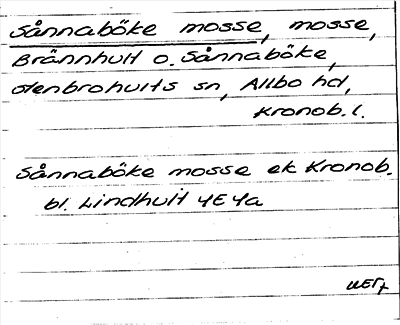 Sånnaböke mosse, mosse,
Brännhult o. Sånnaböke,
Stenbrohults sn, Allbo hd,
Kronob. l.
Sånnaböke mosse ek Kronob.
bl. Lindhult 4E4a